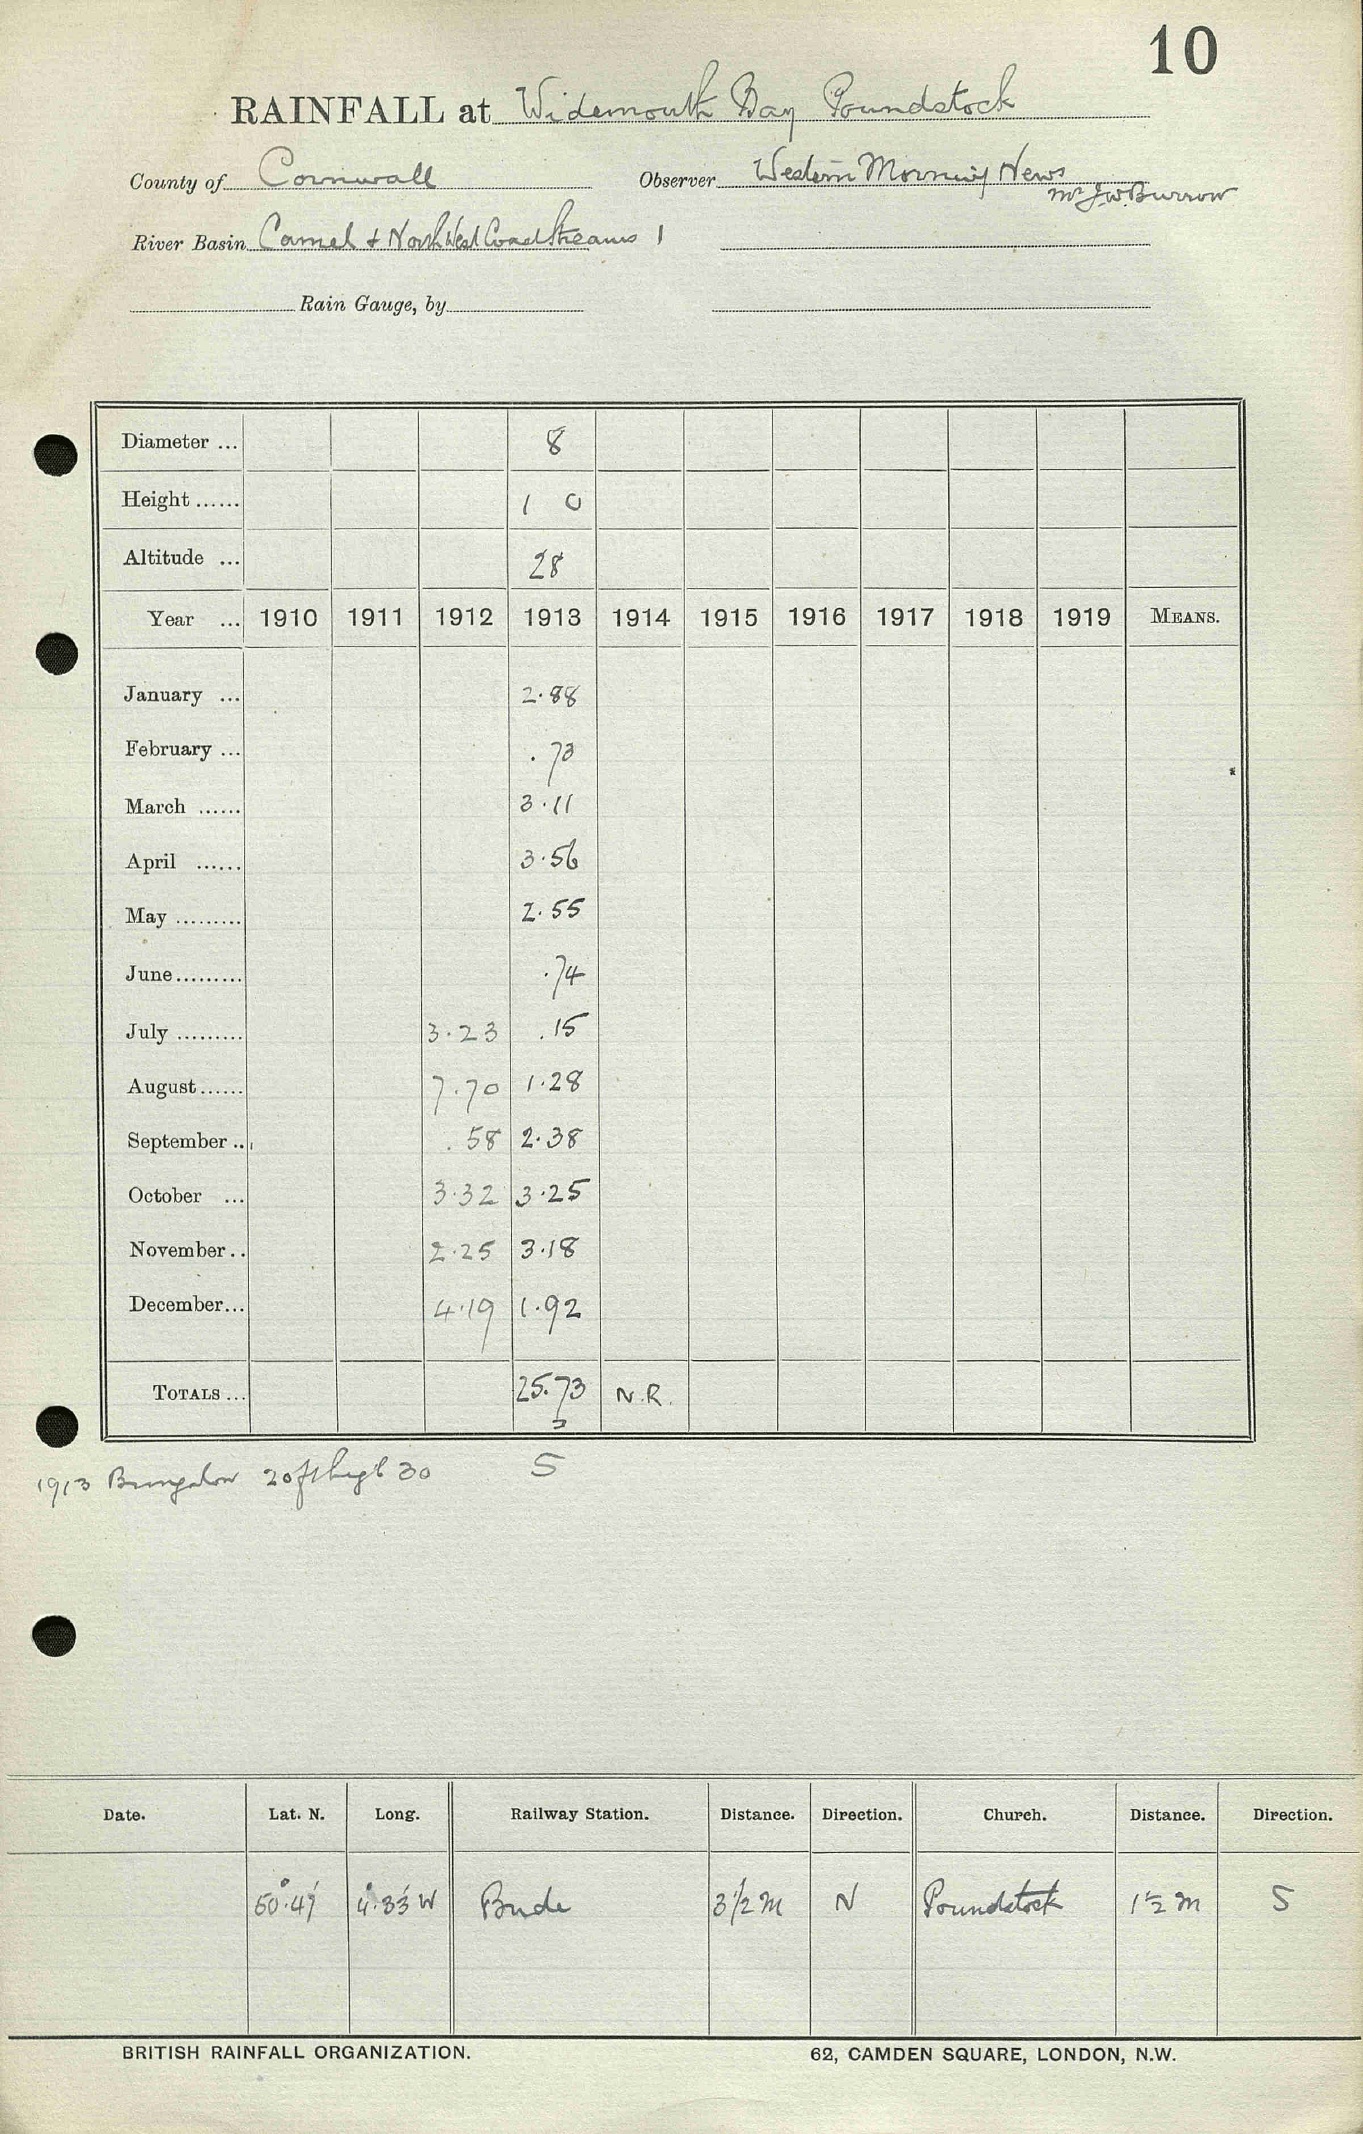 10
RAINFALL at Widemouth Bay Poundstock
County of Cornwall Observer Western Morning News
Mr J.W. Burrow
River Basin Camel & North West Coast Streams 1
Rain Gauge, by
Diameter ... 8
Height ...... 1 0
Altitude ... 28
Year ... 1910 1911 1912 1913 1914 1915 1916 1917 1918 1919 MEANS.
January ... 2.88
February ... .73
March ...... 3.11
April ...... 3.56
May ......... 2.55
June......... .74
July ......... 3.23 .15
August...... 7.70 1.28
September .. .58 2.38
October ... 3.32 3.25
November .. 2.25 3.18
December... 4.19 1.92
TOTALS ... 25.73 N.R.
3
1913 Bungalow 20ft high 30 5
Date. Lat. N. Long. Railway Station. Distance. Direction. Church. Distance. Direction.
50°.47' 4°.33' W Bude 3 1/2 M N Poundstock 1 1/2 M S
BRITISH RAINFALL ORGANIZATION. 62, CAMDEN SQUARE, LONDON, N.W.